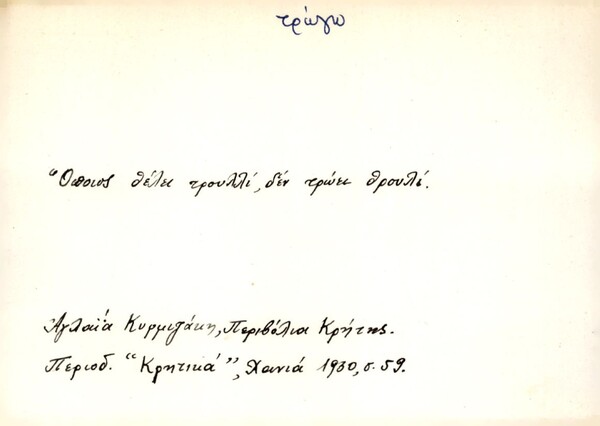 τρώγω
Ὅποιος θέλει τρουλλί, δέν τρώει θρουλί.
Ἀγλαΐα Κυρμιζάκη, Περιβόλια Κρήτης.
Περιοδ. "Κρητικά", Χανιά 1930, σ. 59.